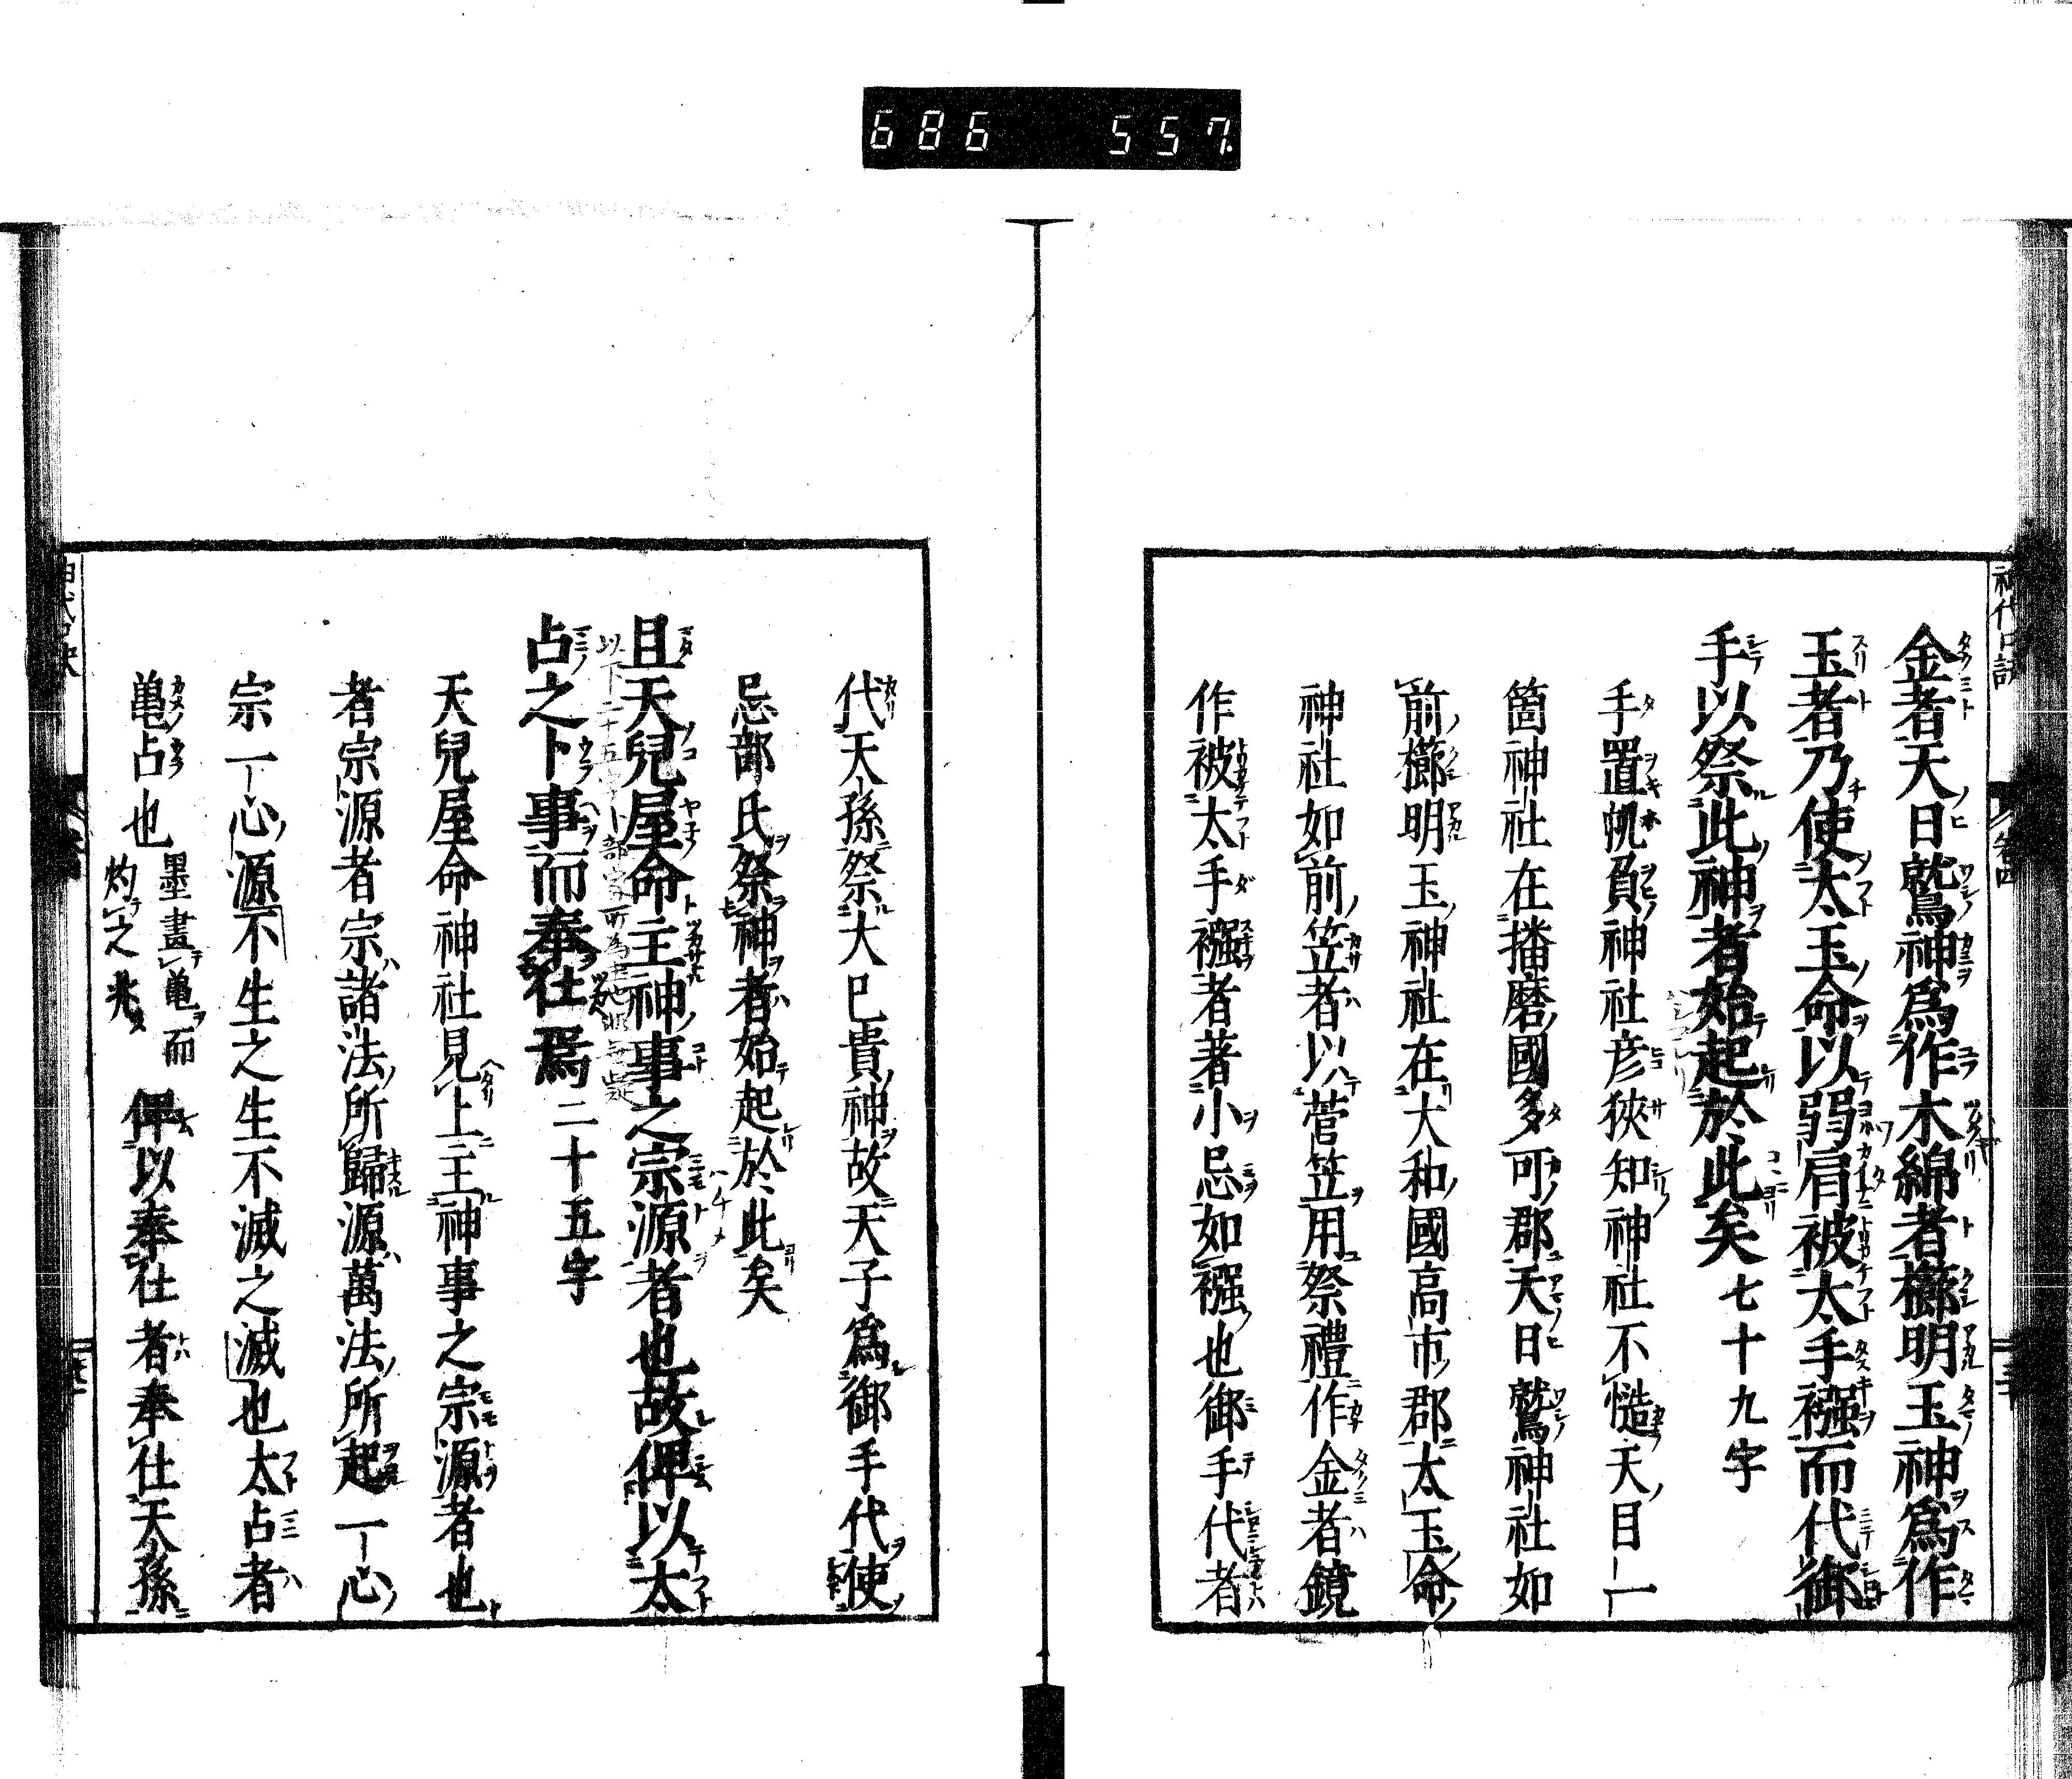 686 557
金者天日鷲神爲作木綿者櫛明玉神爲作
玉者乃使太玉命以弱肩被太手襁而代御
手以祭此神者始起於此矣 七十九字
手置帆負神社彦狹知神社不慥天目一
箇神社在播磨國多可郡天日鷲神社如
前櫛明玉神社在大和國高市郡太玉命
神社如前笠者以菅笠用祭禮作金者鏡
作被太手襁者著小忌如襁也御手代者
代天孫祭大巳貴神故天子爲御手代使
忌部氏祭神者始起於此矣
且天兒屋命主神事之宗源者也故俾以太
占之卜事而奉仕焉 二十五字
天兒屋命神社見上主神事之宗源者也
者宗源者宗諸法所歸源萬法所起一心
宗一心源不生之生不滅之滅也太占者
亀占也 墨畫亀而灼之兆 俾以奉仕者奉仕天孫